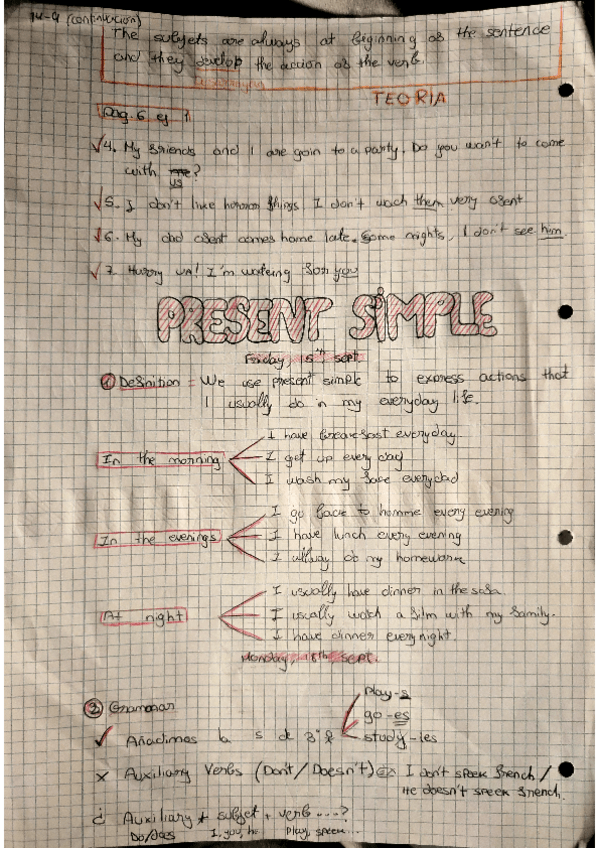 14-9 (continuación)
The subjets are always at biginning of the sentence
and they develop the accion of the verb.
TEORIA
pag. 6 ej 1
4. My friends and I are goin to a party. Do you want to come
with me?
us
5. I don't like horror things. I don't wach them very ofent
6. My dad ofent comes home late. Some nights, I don't see him
7. Hurry up! I'm waiteing for you
PRESENT SIMPLE
Friday, 15th sept.
1 Definition = We use present simple to express actions that
I usually do in my everyday life.
In the morning
I have breakefast everyday.
I get up every day
I wash my fase everydad
In the evenings
I go back to homme every evening
I have lunch every evening
I allway do my homework
At night
I usually have dinner in the sofa.
I usually watch a film with my family.
I have dinner every night.
Monday, 18th sept.
2 Grammar
play-s
go-es
✓ Añadimos la s de 3ª
study-ies
x Auxiliary Verbs (Don't/Doesn't) I don't speek french /
He doesn't speek french.
¿ Auxiliary + subjet + verb ....?
Do/does I, you, he Play, speek...